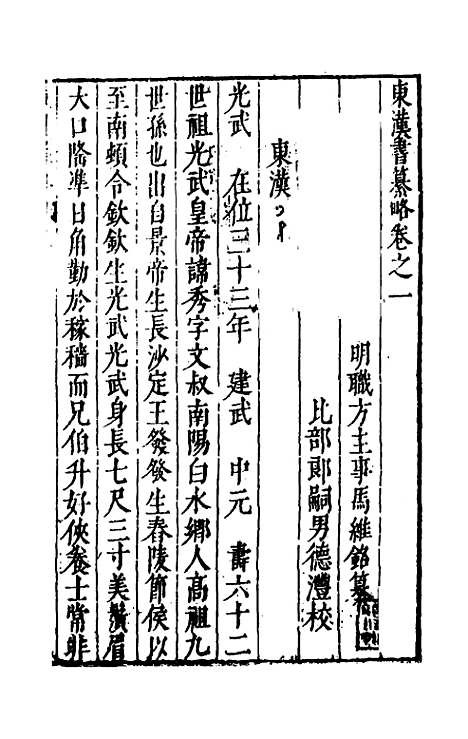 東漢書纂略卷之一
明職方主事馬維銘纂
比部郎嗣男德灃校
東漢
光武 在位三十三年 建武 中元 壽六十二
世祖光武皇帝諱秀字文叔南陽白水鄉人高祖九
世孫也出自景帝生長沙定王發發生舂陵節侯以
至南頓令欽欽生光武光武身長七尺三寸美鬚眉
大口隆準日角勤於稼穡而兄伯升好俠養士常非